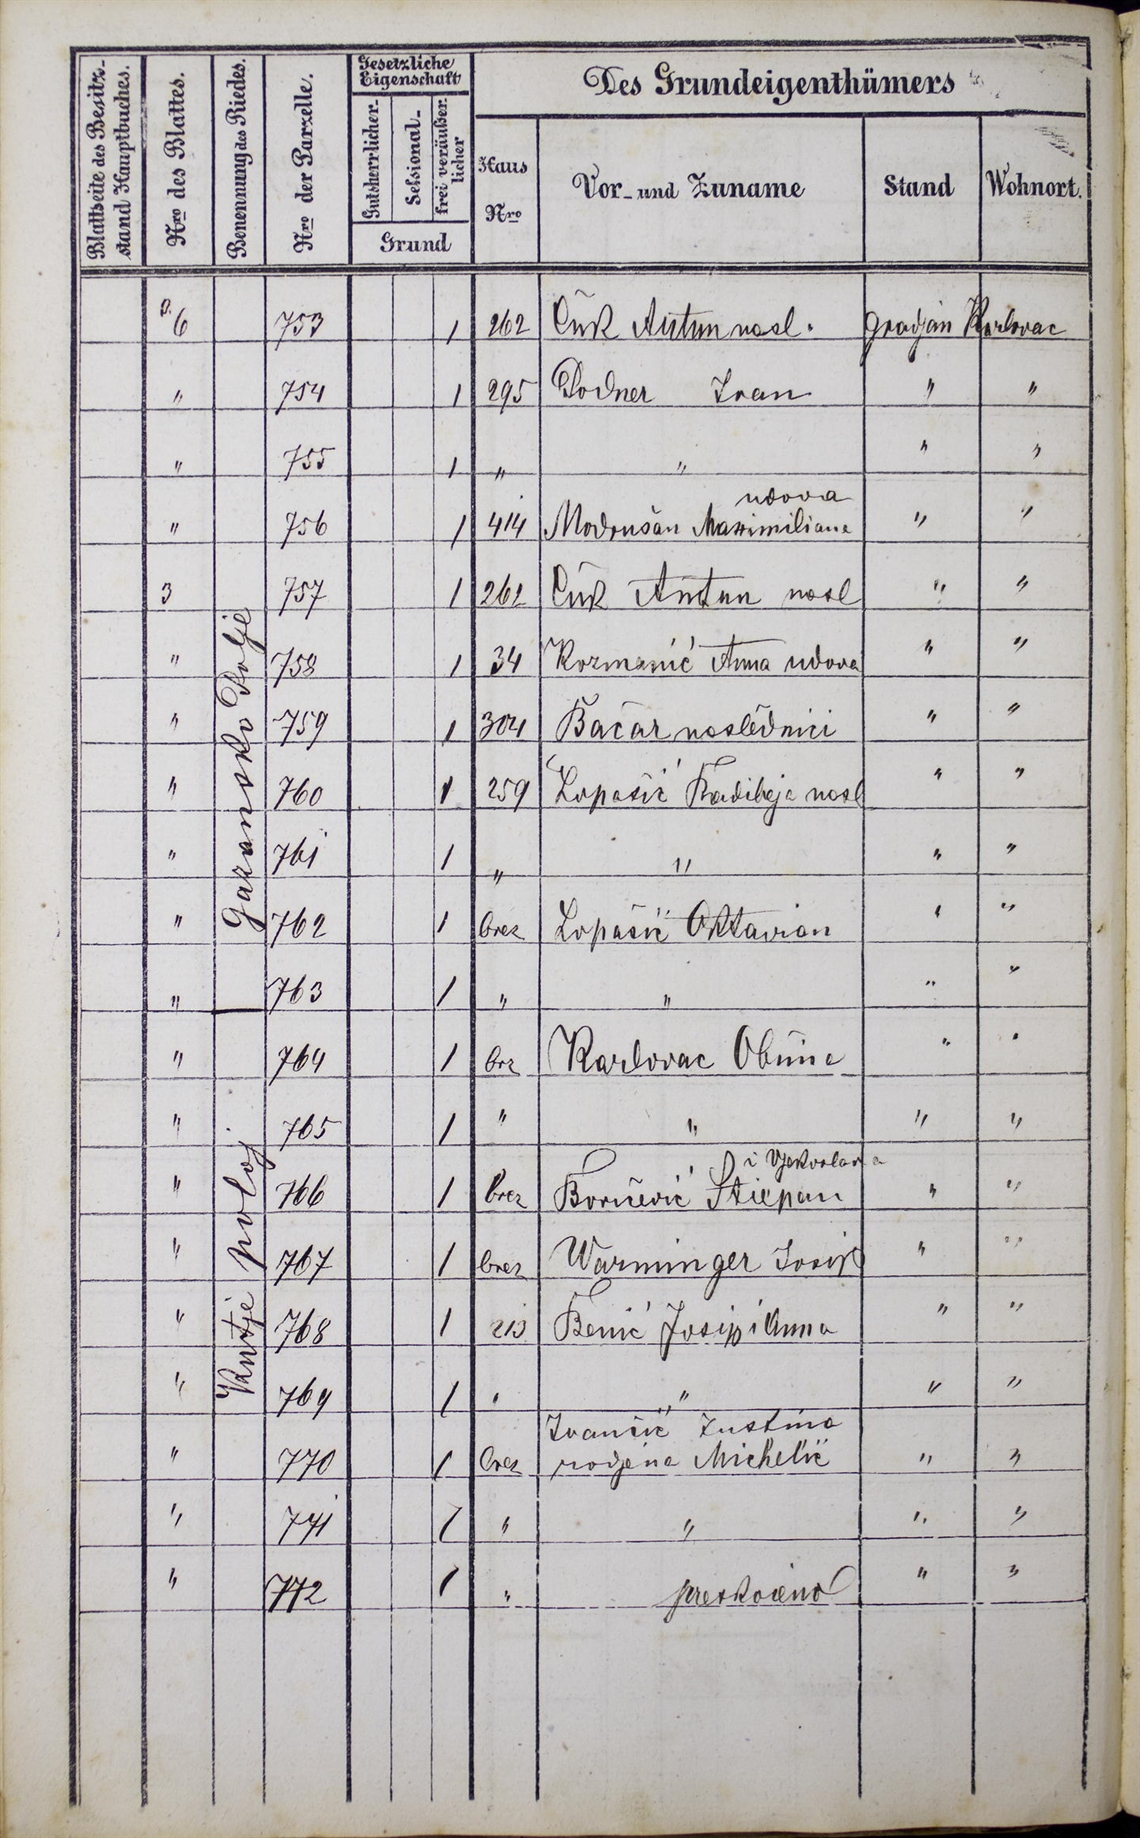 Blattseite des Besitz-
stand Hauptbuches.
Nro des Blattes.
Benennung des Riedes.
Nro der Parzelle.
Gesetzliche
Eigenschaft
Gutsherrlicher-
Sessional-
frei veräußer
licher
Grund
Des Grundeigenthümers
Haus
Nro
Vor- und Zuname
Stand
Wohnort.
6 753 1 262 Čuk Antun nasl. gradjan Karlovac
" 754 1 295 Podner Ivan " "
" 755 1 " " " "
udova
" 756 1 414 Modrušan Maximiliane " "
3 757 1 262 Čuk Antun nasl " "
" 758 1 34 Kozmanić Anna udova " "
" 759 1 304 Bačar naslědnici " "
" 760 1 259 Lopašić nasl " "
" 761 1 " " " "
" 762 1 brez Lopašić Oktavian " "
" 763 1 " " " "
Gazansko Polje
" 764 1 brz Karlovac Obćina " "
" 765 1 " " " "
i Vjekoslava
" 766 1 brez Borićević Stiepan " "
" 767 1 brez Warminger Josip " "
" 768 1 213 Benić Josip i Anna " "
" 769 1 " " " "
Ivančić Justina
" 770 1 brez rodjena Michelić " "
" 771 1 " " " "
" 772 1 " preskočeno " "
poloj